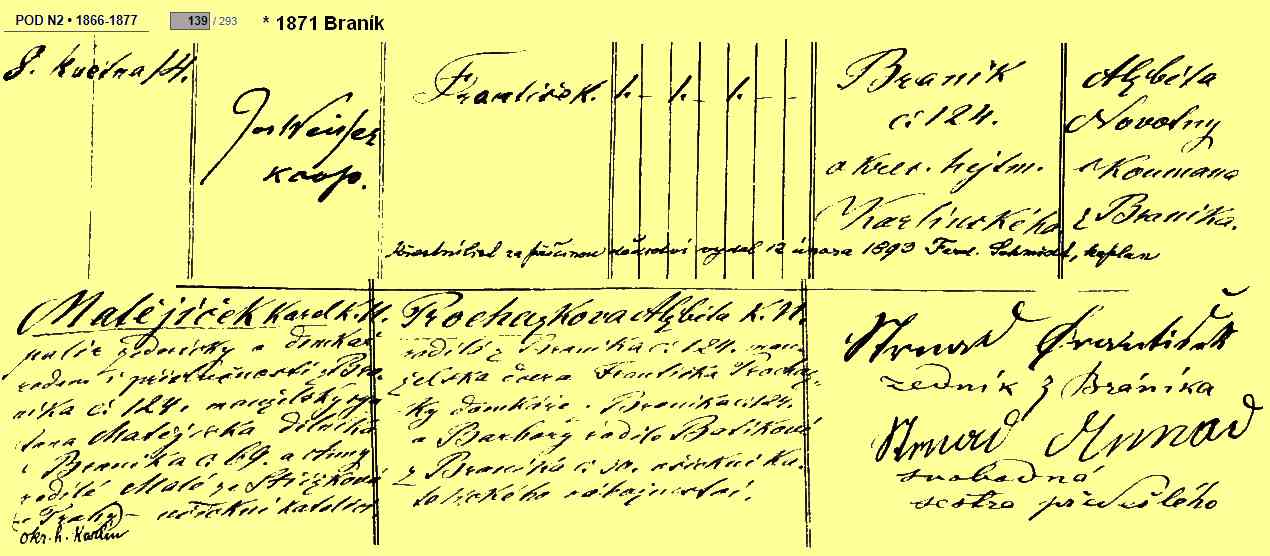 POD N2 • 1866-1877 139 / 293 * 1871 Braník
8. května 14.
Jos Weisser
koop.
František. 1. 1. 1.
Braník
č. 124.
okres. hejtm.
Karlínského
Alžběta
Novotny
Koumana
z Braníka.
Křestní list za příčinou vydal 12 února 1893 Ferd. Schmidt, kaplan
Matějíček Karel k. N.
a domkář
rodem i příslušností z Bra-
níka č. 124. manželský syn
Matějčka dělníka
z Braníka č. 69. a
rodilé
z Prahy – katolíci
okr. h. Karlín
Prochazkova Alžběta k. N.
rodilá z Braníka č. 124. man-
želská dcera Františka Procház-
ky domkáře z Braníka č. 124.
a Barbory rodilé
z Braníka č. ka-
tolického náboženství.
Strnad František
zedník z Braníka
Strnad Anna
svobodná
sestra předešlého